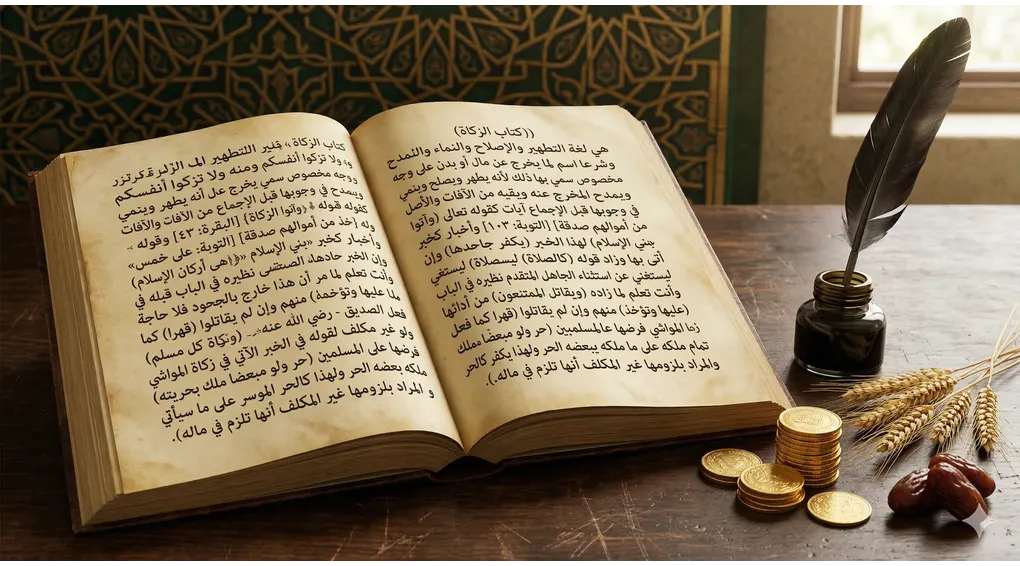 ((كتاب الزكاة)
هي لغة التطهير والإصلاح والنماء والنمدح
وشرعا اسم لما يخرج عن مال أو بدن على وجه
مخصوص سمي بها ذلك لأنه يطهر ويصلح وينمي
ويمدح المخرج عنه ويقيه من الآفات والأصل
في وجوبها قبل الإجماع آيات كقوله تعالى (وآتوا
من أموالهم صدقة] [التوبة: ١٠٣] وأخبار كخبر
بني الإسلام) لهذا الخبر (يكفر جاحدها) وإن
أتى بها وزاد قوله (كالصلاة) ليسصلاة) ليستغي
ليستغني عن استثناء الجاهل المتقدم نظيره في الباب
وأنت تعلم لما زاده (ويقاتل الممتنعون) من أدائها
(عليها وتؤخذ) منهم وإن لم يقاتلوا (قهرا كما فعل
المواشي فرضها عالمسلمين (حر ولو مبعضا ملك
تمام ملكه على ما ملكه ببعضه الحر ولهذا يكفر كالحر
والمراد بلزومها غير المكلف أنها تلزم في ماله).
كتاب الزكاة التطهير
ولا تزكوا أنفسكم ومنه ولا تزكوا أنفسكم
ووجه مخصوص سمي يخرج عل أنه يطهر وينمي
ويمدح في وجوبها قبل الإجماع من الآفات والآفات
كقوله قوله (وآتوا الزكاة)] [البقرة: ٤٣] وقوله
وله [خذ من أموالهم صدقة] [التوبة: على خمس»
وأخبار كخبر «بني الإسلام (هى أركان الإسلام)
وإن الخبر نظيره في الباب قبله في
وأنت تعلم لما مر أن هذا خارج بالجحود فلا حاجة
عليها منهم وإن لم يقاتلوا (قهرا) كما
فعل الصديق - رضي الله عنه - (وزكاة كل مسلم)
ولو غير مكلف لقوله في الخبر الآتي في زكاة المواشي
فرضها على المسلمين (حر ولو مبعضا ملك بحريته)
ملكه بعضه الحر ولهذا كالحر الموسر على ما سيأتي
و المراد بلزومها غير المكلف أنها تلزم في ماله).